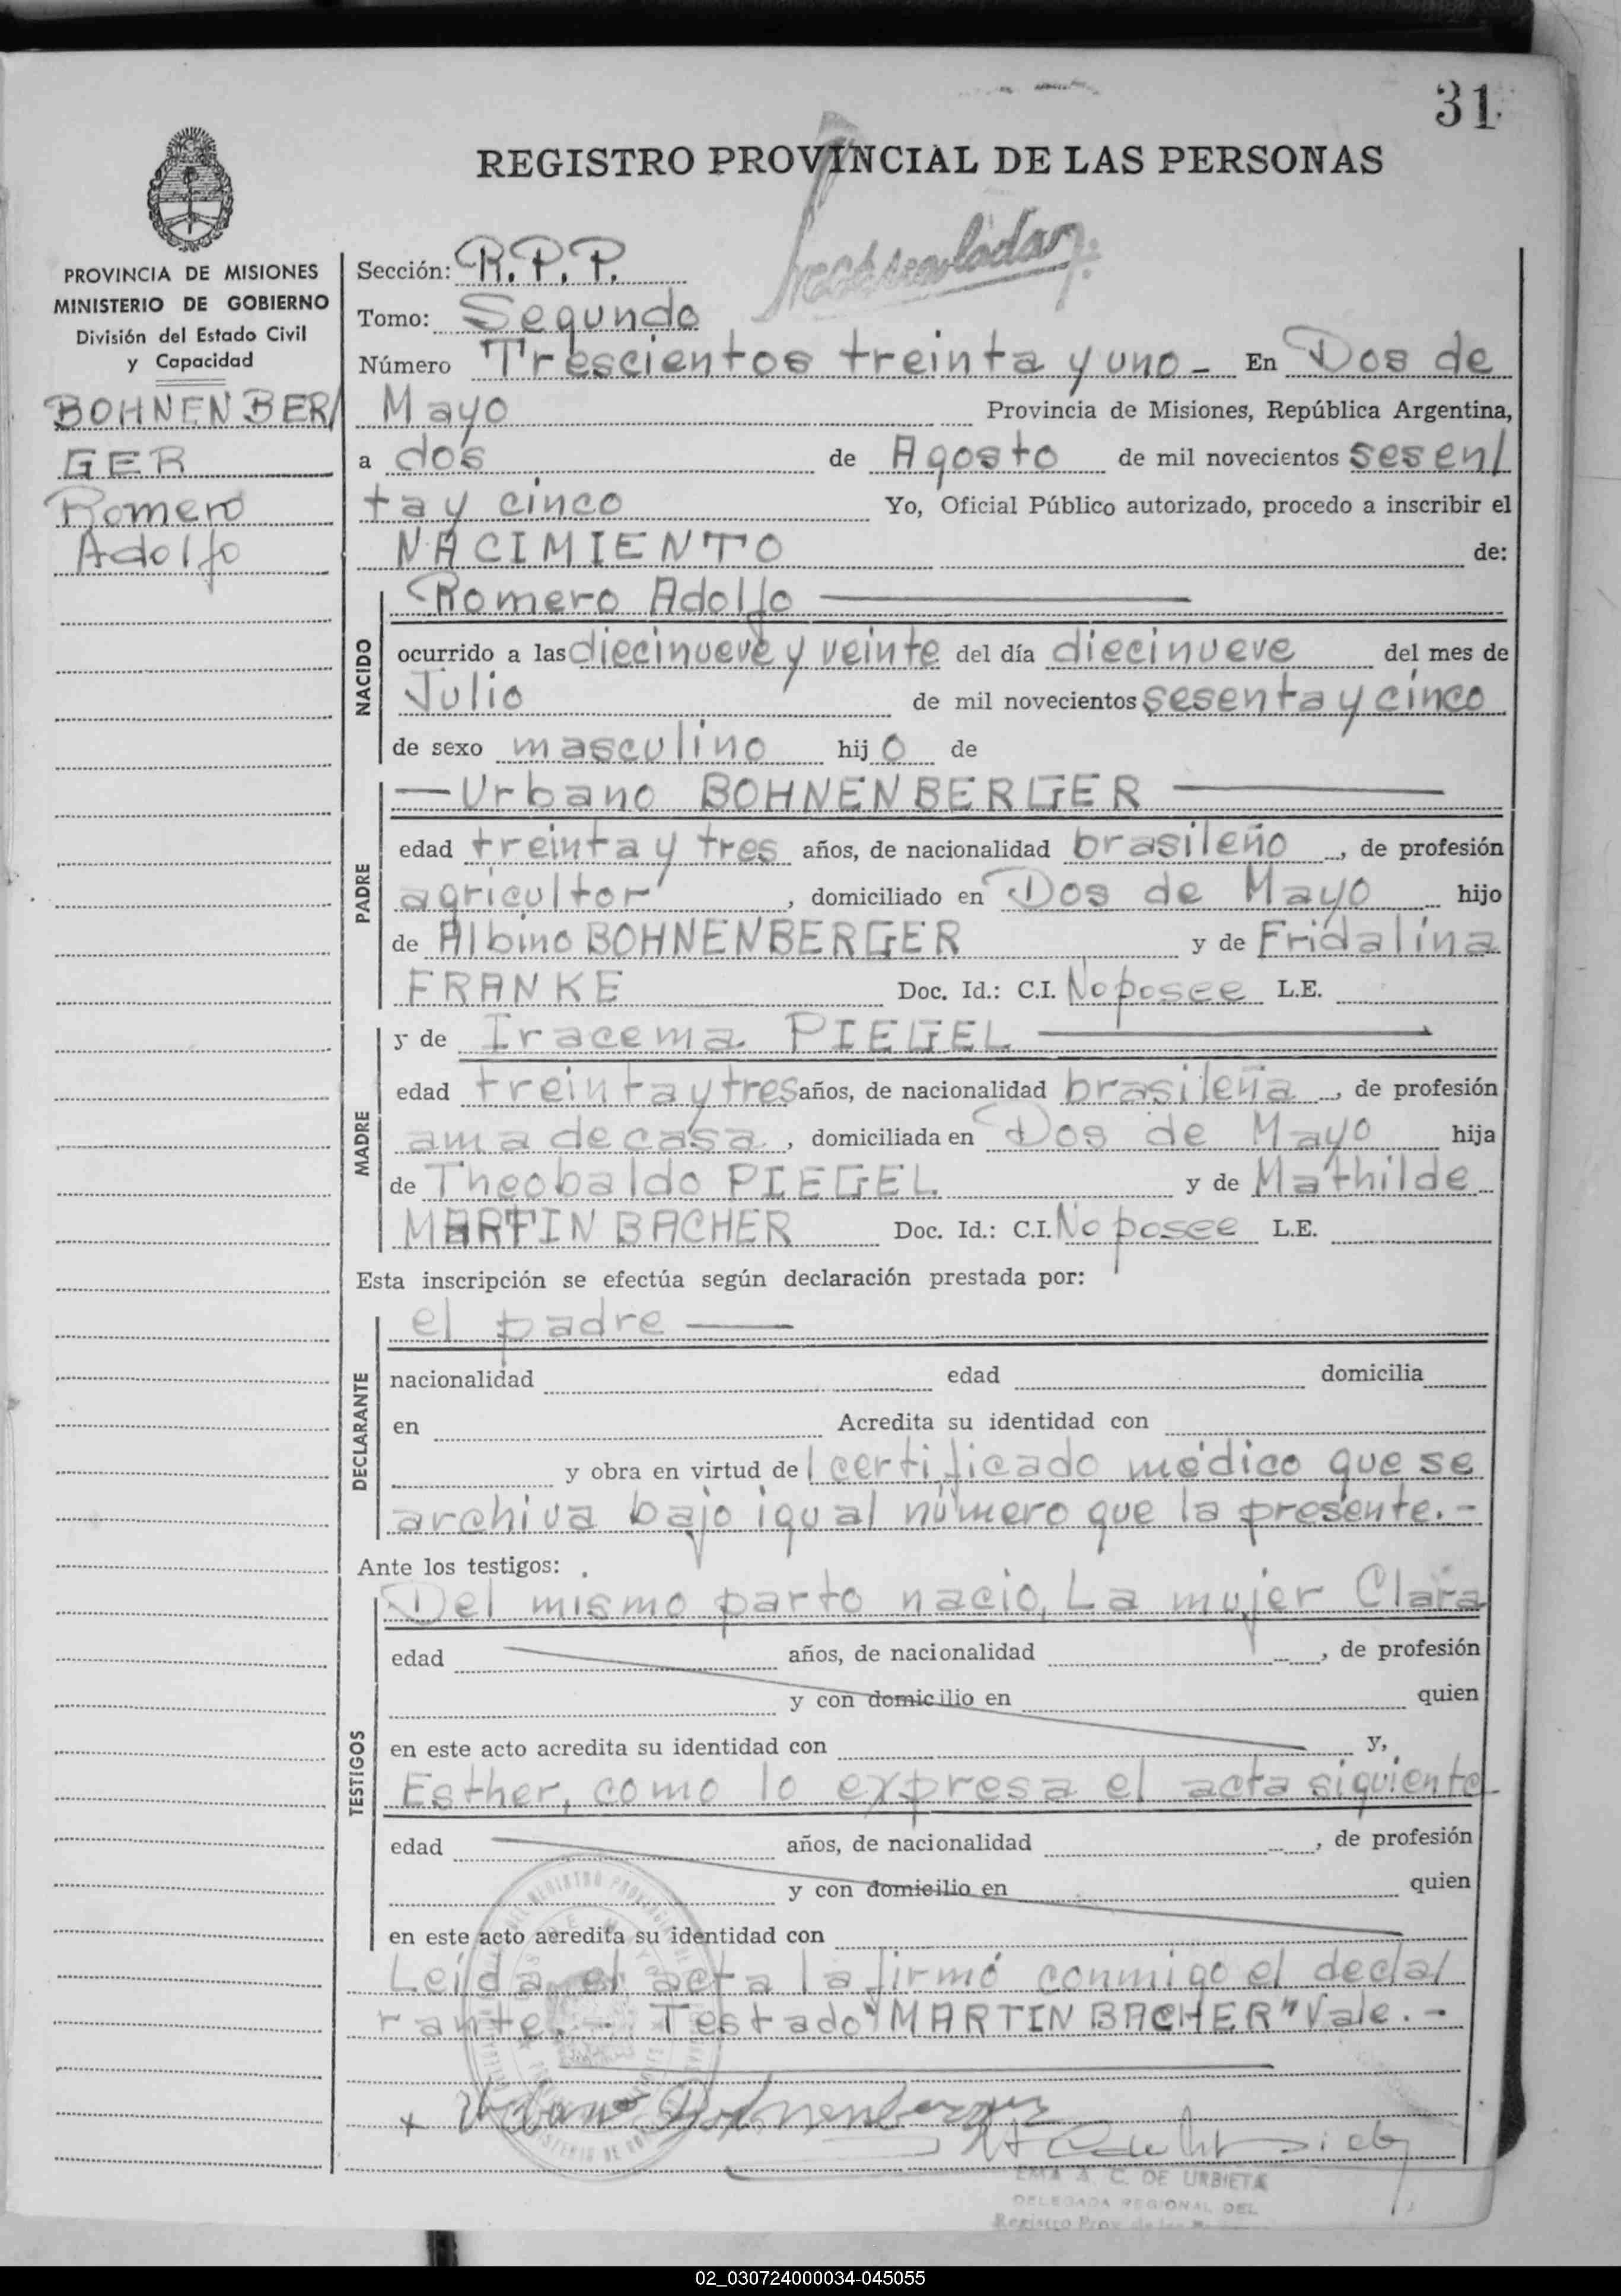 31
REGISTRO PROVINCIAL DE LAS PERSONAS
PROVINCIA DE MISIONES
MINISTERIO DE GOBIERNO
División del Estado Civil
y Capacidad
BOHNENBER/
GER
Romero
Adolfo
Sección: R.P.P.
Tomo: Segundo
Número Trescientos treinta y uno - En Dos de
Mayo Provincia de Misiones, República Argentina,
a dós de Agosto de mil novecientos sesen/
ta y cinco Yo, Oficial Público autorizado, procedo a inscribir el
NACIMIENTO de:
NACIDO
Romero Adolfo
ocurrido a las diecinueve y veinte del día diecinueve del mes de
Julio de mil novecientos sesenta y cinco
de sexo masculino hijo de
PADRE
Urbano BOHNENBERGER
edad treinta y tres años, de nacionalidad brasileño, de profesión
agricultor, domiciliado en Dos de Mayo hijo
de Albino BOHNENBERGER y de Fridalina
FRANKE Doc. Id.: C.I. No posee L.E.
MADRE
y de Iracema PIEGEL
edad treinta y tres años, de nacionalidad brasileña, de profesión
ama de casa, domiciliada en Dos de Mayo hija
de Theobaldo PIEGEL y de Mathilde
MARTIN BACHER Doc. Id.: C.I. No posee L.E.
Esta inscripción se efectúa según declaración prestada por:
DECLARANTE
el padre
nacionalidad edad domicilia
en Acredita su identidad con
y obra en virtud del certificado médico que se
archiva bajo igual número que la presente.-
Ante los testigos:
TESTIGOS
Del mismo parto nacio, La mujer Clara
edad años, de nacionalidad , de profesión
y con domicilio en quien
en este acto acredita su identidad con y,
Esther, como lo expresa el acta siguiente
edad años, de nacionalidad , de profesión
y con domicilio en quien
en este acto acredita su identidad con
Leída el acta la firmó conmigo el decla/
rante.- Testado "MARTIN BACHER" Vale.-
Urbano Bohnenberger
EMA A. C. DE URBIETA
DELEGADA REGIONAL DEL
Registro Prov. de las
02_030724000034-045055